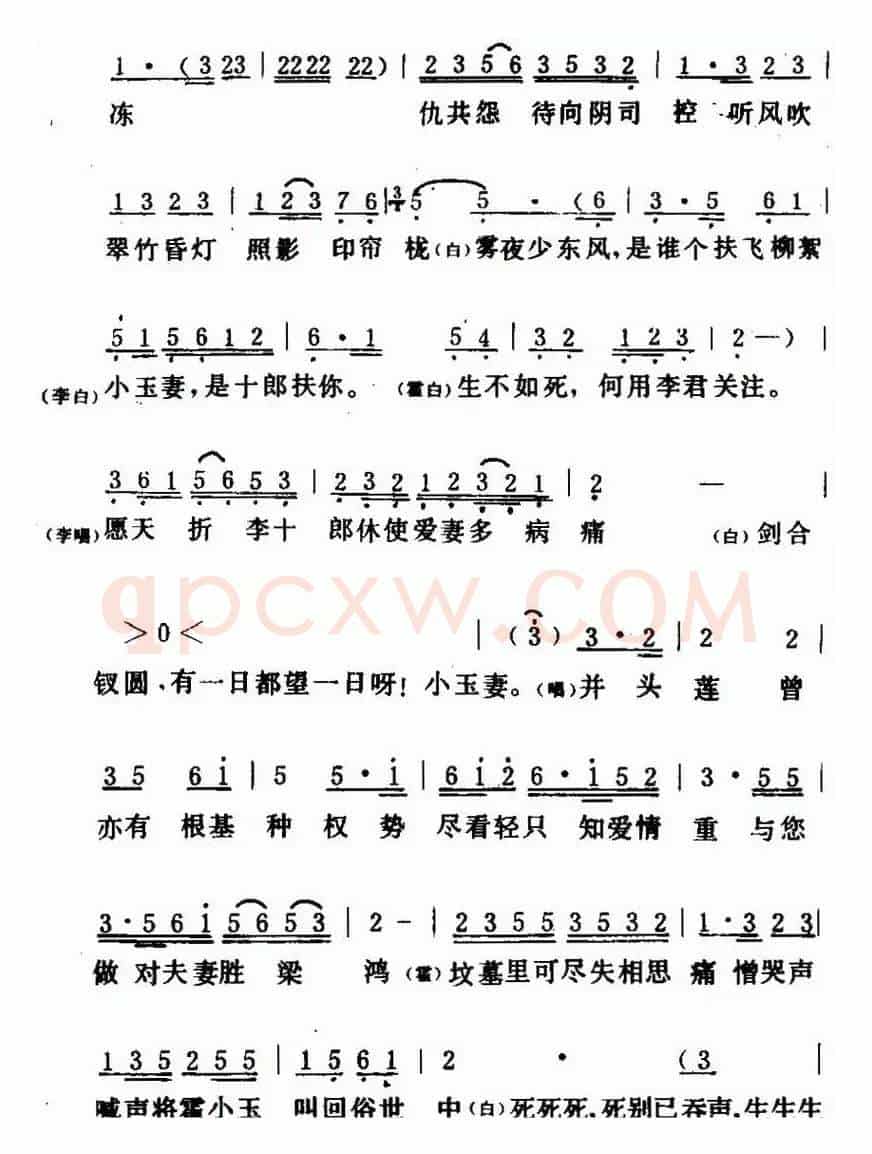 1 · (3 23 | 2222 22) | 2356 3532 | 1 · 3 23 |
冻 仇共怨 待向阴司 控 听风吹
1323 | 123 76 | 5 5 · (6 | 3 · 5 61 |
翠竹昏灯 照影 印帘 栊(白)雾夜少东风,是谁个扶飞柳絮
51 5612 | 6 · 1 54 | 32 123 | 2 —) |
(李白)小玉妻,是十郎扶你。(霍白)生不如死,何用李君关注。
361 5653 | 232 12321 | 2 — |
(李唱)愿天 折 李十 郎休使爱妻多 病 痛 (白)剑合
qpcxw.com
>0< | (3) 3 · 2 | 2 2 |
钗圆、有一日都望一日呀!小玉妻。(唱)并 头 莲 曾
35 61 | 5 5 · 1 | 612 6 · 152 | 3 · 55 |
亦有 根基 种 权 势 尽看轻只 知爱情 重 与您
3 · 561 5653 | 2 - | 2355 3532 | 1 · 3 23 |
做 对夫妻胜 梁 鸿 (霍)坟墓里可尽失相思 痛 憎哭声
135 255 | 15 61 | 2 · (3 |
喊声将霍小玉 叫回俗世 中(白)死死死,死别已吞声,生生生